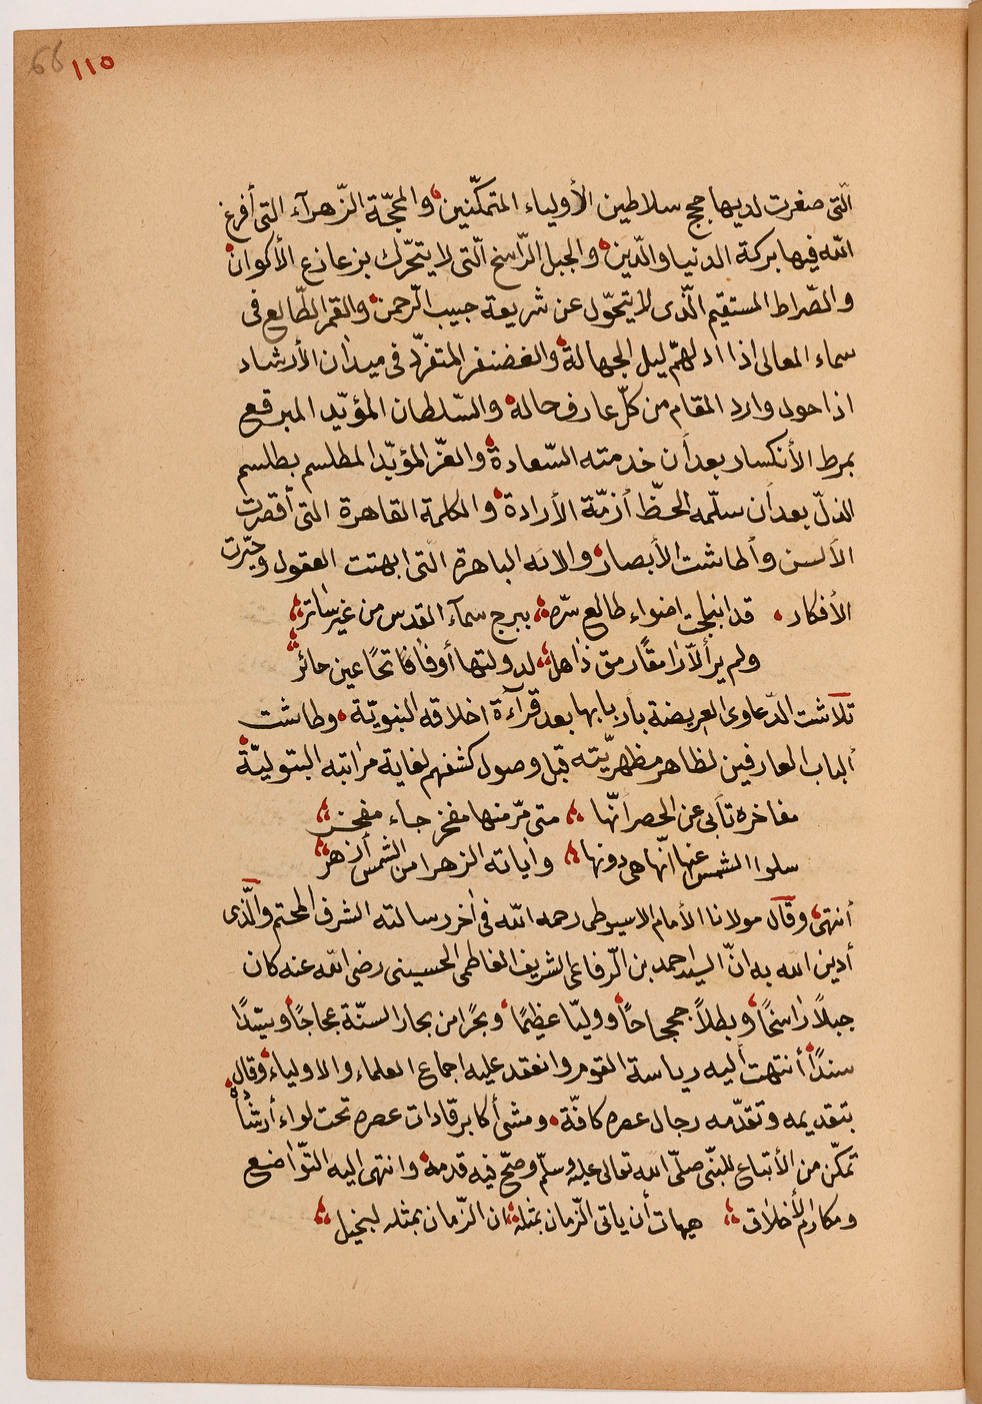 66 ١١٥
الّتى صغرت لديها حجج سلاطين الأولياء المتمكّنين، والمحجّة الزّهرآء التى أفرغ
الله فيها بركة الدنيا والدّين، والجبل الرّاسخ الّتى لا يتحرّك بزعازع الأكوان،
والصّراط المستقيم الّذى لا يتحوّل عن شريعة حبيب الرّحمن، والقمر الطّالع فى
سماء المعالى اذا ادلهمّ ليل الجهالة، والغضنفر المتفرّد فى ميدان الأرشاد
اذا حول وارد المقام من كلّ عارف حاله، والسّلطان المؤيّد المبرقع
بمرط الأنكسار بعد أن خدمته السّعادة، والعزّ المؤيّد المطلسم بطلسم
الذلّ بعد أن سلّمه الحظّ أزمّة الأرادة، والكلمة القاهرة التى أقصرت
الألسن وأطاشت الأبصار، والاته الباهرة الّتى ابهتت العقول وحيّرت
الأفكار، قد انجلت اضواء طالع سّره، ببرج سمآء القدس من غير ساتر
ولم ير ألّا رامقًا رمق ذاهل، لدولتها أو فاتحًا عين حائر
تلاشت الدّعاوى العريضة باربابها بعد قرآءة اخلاقه النبويّة، وطاشت
ألباب العارفين لظاهر مظهريّته قبل وصول كشفهم لغاية مراتبه البتوليّة،
مفاخره تأبى عن الحصر أنّها، متى مرّ منها مفخر جاء مفخر
سلوا الشمس عنها انّها هى دونها، وآياته الزهرا من الشمس أزهر
أنتهى، وقال مولانا الأمام الاسيوطى رحمه الله فى اخر رسالته الشرف المحتم والّذى
أدين الله به انّ السيد احمد بن الرّفاعى الشريف الفاطمى الحسينى رضى الله عنه كان
جبلًا راسخًا، وبطلًا جحجاحًا، ووليّا عظيمًا، وبحرًا من بحار السنّة عجاجًا، وسيّدًا
سندًا، أنتهت أليه رياسة القوم وانعقد عليه اجماع العلماء والاولياء، وقال
بتقديمه وتقدّمه رجال عصره كافّة، ومشى أكابر قادات عصره تحت لواء أرشاده،
تمكّن من الأتباع للنبّى صلّى الله تعالى عليه وسلّم وصحّ فيه قدمه، وانتهى اليه التّواضع
ومكارم الأخلاق، هيهات أن ياتى الزّمان بمثله، ان الزّمان بمثله لبخيل